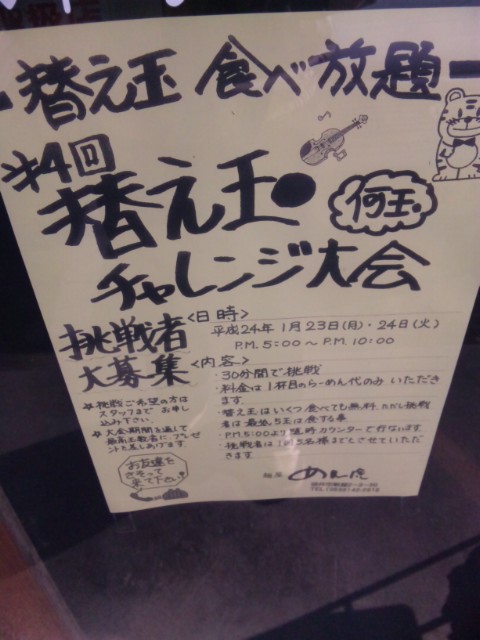 取扱店
替え玉 食べ放題
オ4回
替え玉
何玉
チャレンジ大会
挑戦者
大募集
<日時>
平成24年 1月23日(月)・24日(火)
P.M. 5:00 ~ P.M. 10:00
<内容>
・30分間で挑戦
・料金は1杯目のらーめん代のみ いただき
ます
・替え玉はいくつ食べても無料 ただし挑戦
者は最低5玉は食する事
・P.M 5:00より随時カウンターで行ないます
・挑戦者は1回5名様までとさせていただ
きます
☆挑戦ご希望の方は
スタッフまで お申し
込み下さい
☆大会期間を通して
最高玉数者に、プレゼ
ントを差しあげます。
お友達を
さそって
来て下さい
麺屋